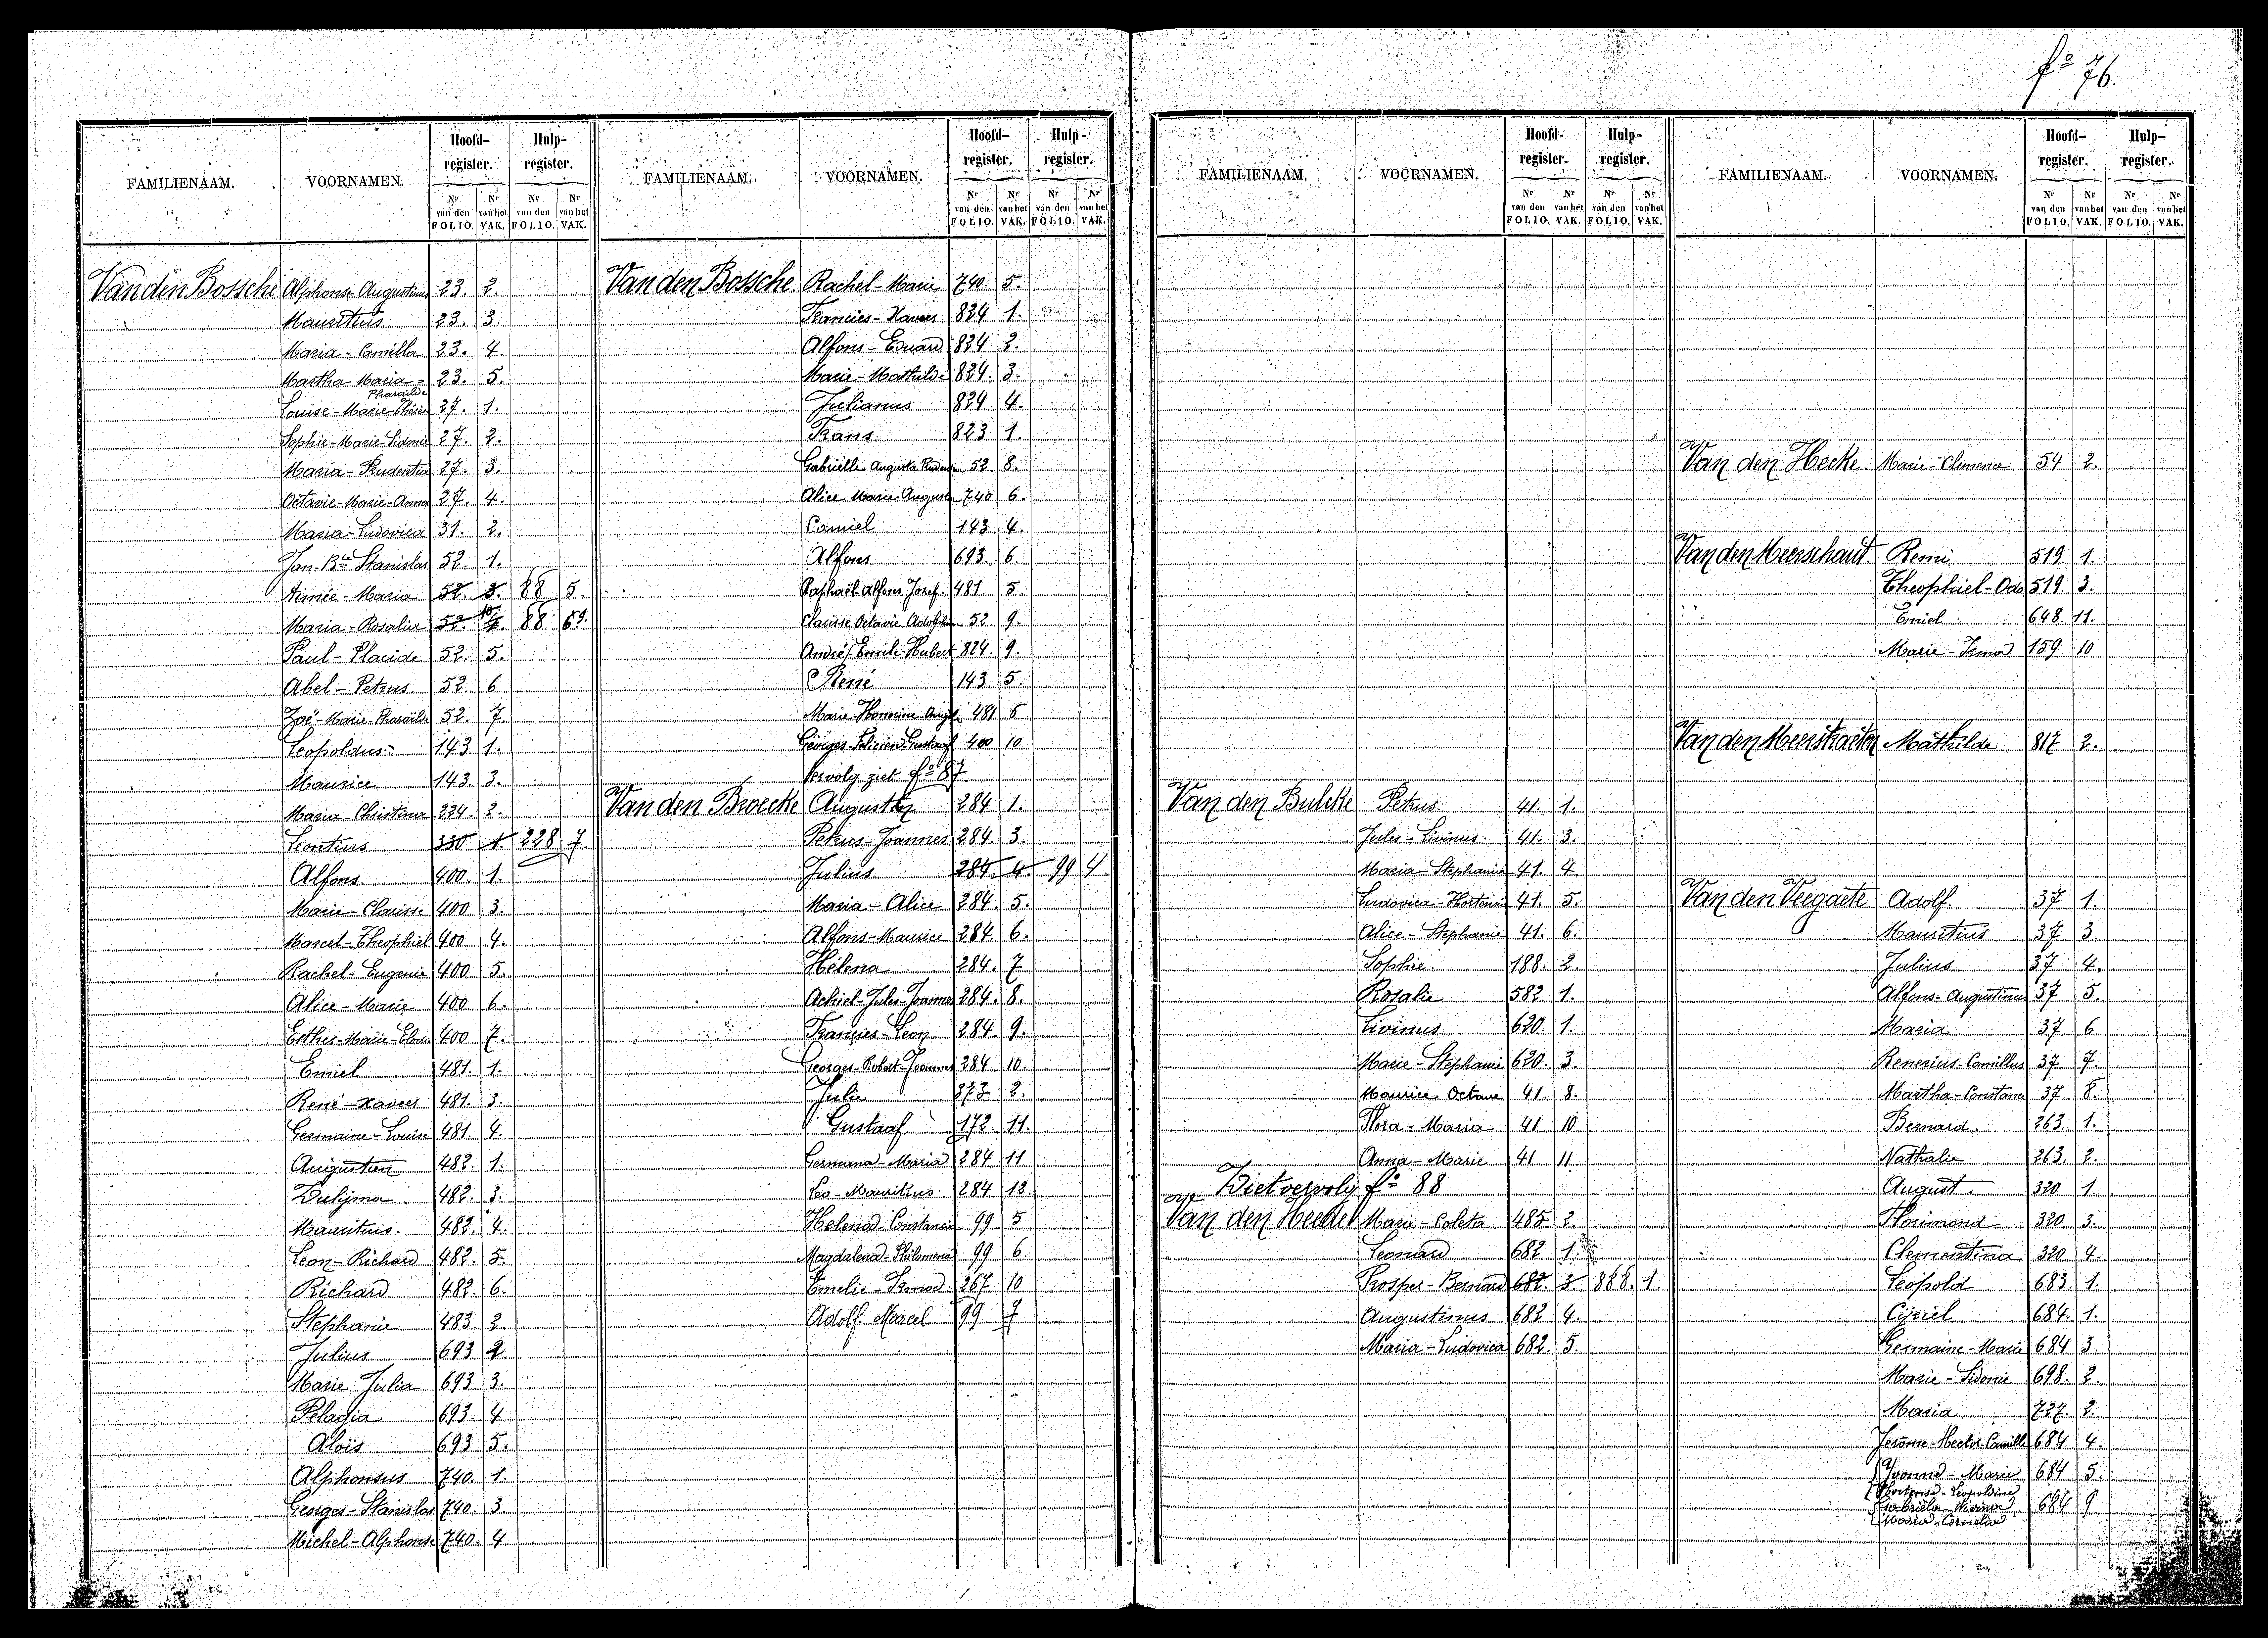 fº 76.
FAMILIENAAM. VOORNAMEN. Hoofd-register. Hulp-register.
Nr van den FOLIO. Nr van het VAK. Nr van den FOLIO. Nr van het VAK.
Van den Bossche Alphonse Augustinus 23. 2.
Mauritius 23. 3.
Maria-Camilla 23. 4.
Martha-Maria-Pharaïlde 23. 5.
Louise-Marie-Thérèse 27. 1.
Sophie-Marie-Sidonie 27. 2.
Maria-Prudentia 27. 3.
Octavie-Marie-Anna 27. 4.
Maria-Ludovica 31. 2.
Jan-Bte Stanislas 52. 1.
Aimée-Maria 52. 3. 88 5.
Maria-Rosalia 52. 88
Paul-Placide 52. 5.
Abel-Petrus 52. 6
Zoë-Marie-Pharaïlde 52. 7.
Leopoldus 143. 1.
Maurice 143. 3.
Maria-Christina 224. 2.
Leontius 330 1 228 7.
Alfons 400. 1.
Marie-Clarisse 400 3.
Marcel-Theophiel 400 4.
Rachel-Eugenie 400 5.
Alice-Marie 400 6.
Esther-Marie-Elodie 400 7.
Emiel 481. 1.
René-Xaveer 481. 3.
Germaine-Louise 481. 4.
Augustien 482. 1.
Dulijma 482. 3.
Mauritus. 482. 4.
Leon-Richard 482. 5.
Richard 482. 6.
Stephanie 483. 2.
Julius 693 2
Marie Julia 693 3.
Pelagia 693. 4
Aloïs 693 5.
Alphonsus 740. 1.
Georges-Stanislas 740. 3.
Michel-Alphonse 740. 4
FAMILIENAAM. VOORNAMEN. Hoofd-register. Hulp-register.
Nr van den FOLIO. Nr van het VAK. Nr van den FOLIO. Nr van het VAK.
Van den Bossche Rachel-Marie 740. 5.
Francies-Xaveer 824 1.
Alfons-Eduard 824 2.
Marie-Mathilde 824. 3.
Julianus 824. 4.
Frans 823 1.
Gabriëlle Augusta 52 8.
Alice Marie-Augusta 740 6.
Camiel 143 4.
Alfons 693. 6.
Raphaël-Alfons Jozef. 481. 5.
Clarisse Octavie 52. 9.
André Emile-Hubert 824. 9.
René 143 5.
Marie- 481 6
Georges- Gustaaf 400 10
Vervolg ziet fº 87
Van den Broecke Augustin 284 1.
Petrus-Joannes 284. 3.
Julius 284. 4. 99 4
Maria-Alice 284. 5.
Alfons-Maurice 284. 6.
Hélena 284. 7
Achiel-Jules-Joannes 284. 8.
Francies-Leon 284. 9.
Georges-Robert-Joannes 284 10.
Julie 373 2.
Gustaaf 172. 11.
Germana-Maria 284 11
Leo-Mauritius 284 12.
Helena-Constancia 99 5
Magdalena-Philomena 99 6.
Emelie-Irma 267 10
Adolf Marcel 99 7
FAMILIENAAM. VOORNAMEN. Hoofd-register. Hulp-register.
Nr van den FOLIO. Nr van het VAK. Nr van den FOLIO. Nr van het VAK.
Van den Bulcke Petrus 41. 1.
Jules-Livinus 41. 3.
Maria-Stephania 41. 4
Ludovica-Hortensia 41. 5.
Alice-Stephanie 41. 6.
Sophie. 188. 2.
Rosalie 582 1.
Livinus 620. 1.
Marie-Stephanie 620. 3.
Maurice Octave 41. 8.
Flora-Maria 41 10
Anna-Marie 41 11
Ziet vervolg fº 88
Van den Heede Marie-Coleta 485 2
Leonard 682 1.
Prosper-Bernard 682. 3 868. 1.
Augustinus 682 4.
Maria-Ludovica 682. 5.
FAMILIENAAM. VOORNAMEN. Hoofd-register. Hulp-register.
Nr van den FOLIO. Nr van het VAK. Nr van den FOLIO. Nr van het VAK.
Van den Hecke Marie-Clemence 54 2.
Van den Meerschaut Remi 519 1.
Theophiel-Odo 519. 3.
Emiel 648. 11.
Marie-Irma 159 10
Van den Meerschaeten Mathilde 817 2.
Van den Veegaete Adolf. 37 1.
Mauritius 37 3.
Julius 37 4.
Alfons-Augustinus 37 5.
Maria 37 6
Renerius-Camillus 37 7.
Martha-Constance 37 8.
Bernard 263. 1.
Nathalie 263. 2.
August. 320 1.
Florimond 320 3.
Clementina 320 4.
Leopold 683. 1.
Cyriel 684. 1.
Germaine-Marie 684 3.
Marie-Sidonie 698. 2.
Maria 727. 2.
Jerôme-Hector-Camille 684 4.
Yvonne-Marie 684 5.
Hortense-Leopoldine
Gabriela- 684 9
Maria-Cornelia